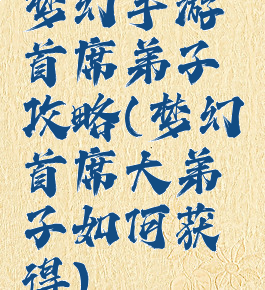 梦幻手游
首席弟子
攻略(梦幻
首席大弟
子如何获
得)